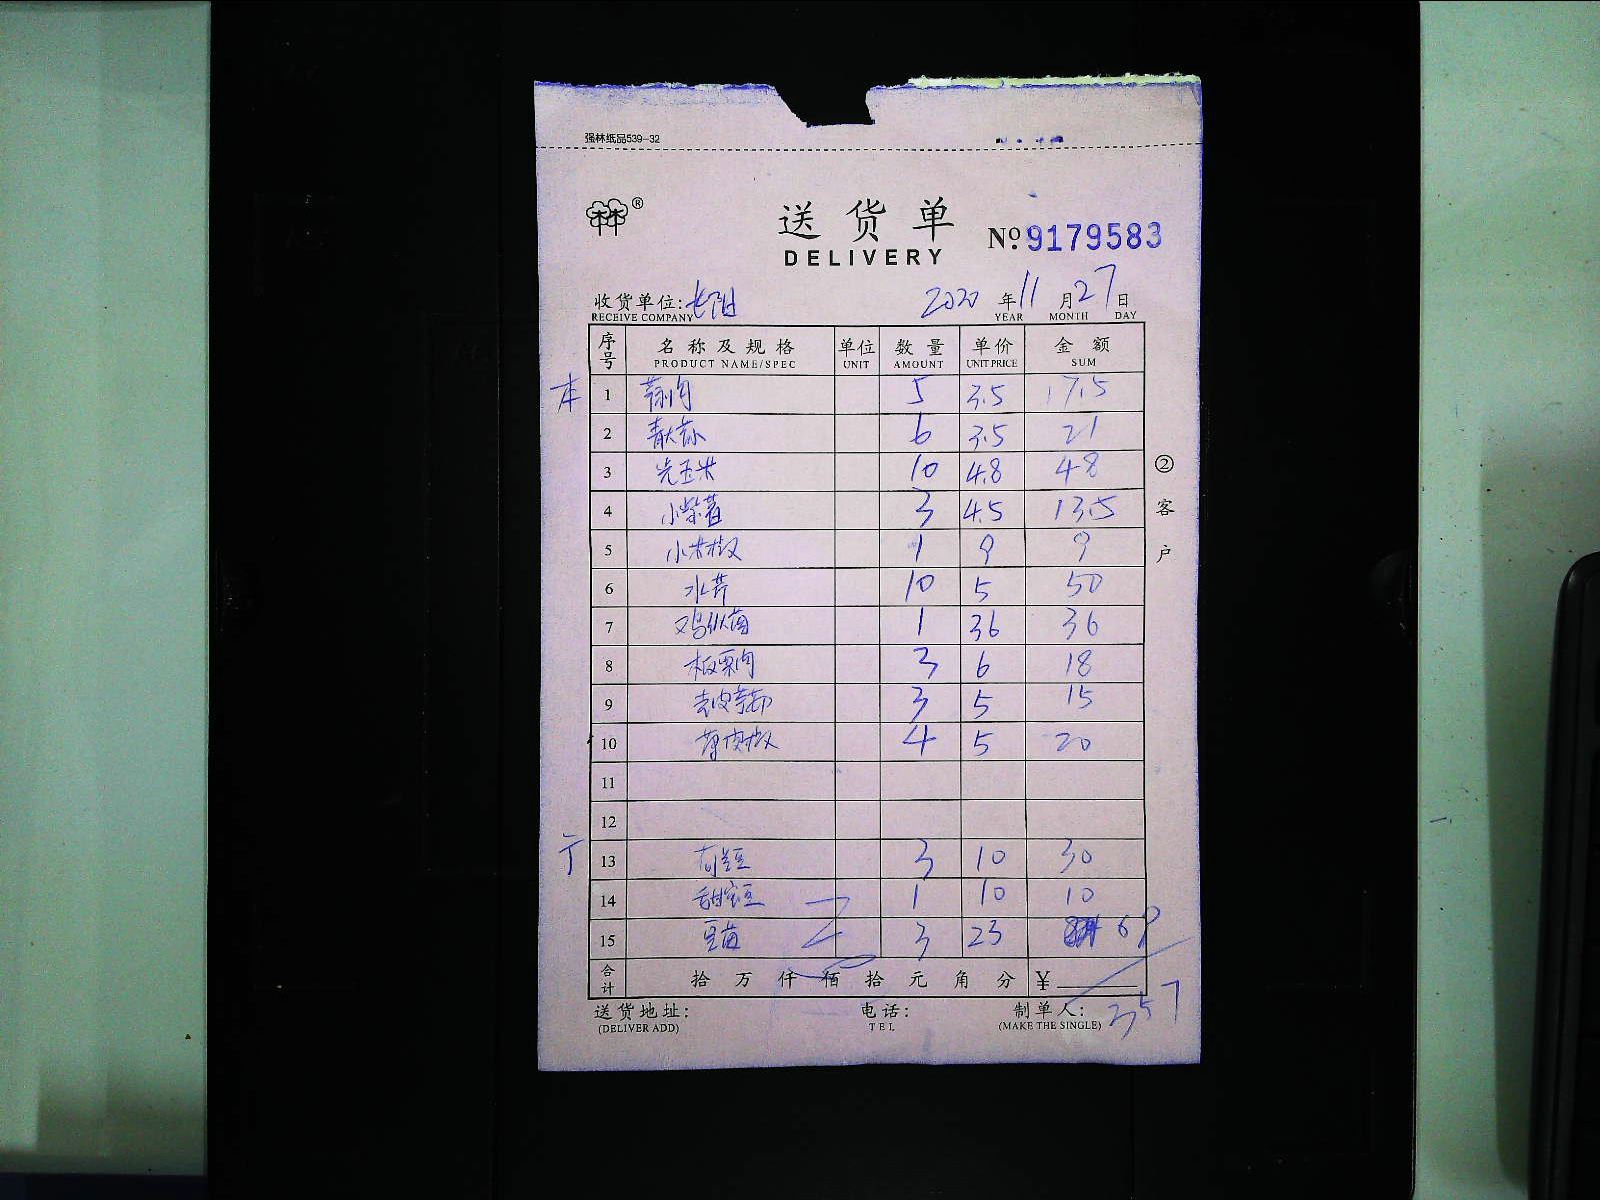 强林纸品539-32
林®
送货单 № 9179583
DELIVERY
收货单位: 2020 年 11 月 27 日
RECEIVE COMPANY YEAR MONTH DAY
序号 名称及规格 单位 数量 单价 金额
PRODUCT NAME/SPEC UNIT AMOUNT UNIT PRICE SUM
本 1 5 3.5 17.5
2 6 3.5 21
3 玉米 10 4.8 48
4 小紫薯 3 4.5 13.5
5 小米椒 1 9 9
6 水芹 10 5 50
7 鸡枞菌 1 36 36
8 板栗肉 3 6 18
9 3 5 15
10 薄皮椒 4 5 20
11
12
13 荷兰豆 3 10 30
14 甜蜜豆 1 10 10
15 豆苗 3 23 69
合计 拾 万 仟 佰 拾 元 角 分 ¥ 357
送货地址: 电话: 制单人:
(DELIVER ADD) TEL (MAKE THE SINGLE)
②客户